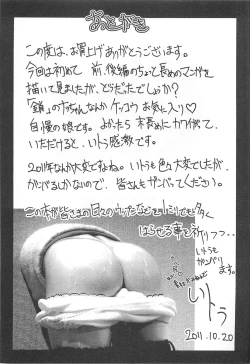 あとがき
この度は、お買上げありがとうございます。
今回は初めて 前、後編のちょっと長めのマンガを
描いて見ましたが、どうだったでしょうか?
「鎖」のナっちゃんなんか ケッコウ お気に入り♡
自慢の娘です。よかったら 末長めに カワイがって、
いただけると、いトう感激です。
2011年なんか大変ですねぇ。いトうも色々大変でしたが、
がんばるしかないので、皆さんもガンバってください。
この本が皆さまの日々の
はらせる事を祈りつつ…
いトうも
ガンバり
ます。
いトう
2011.10.20